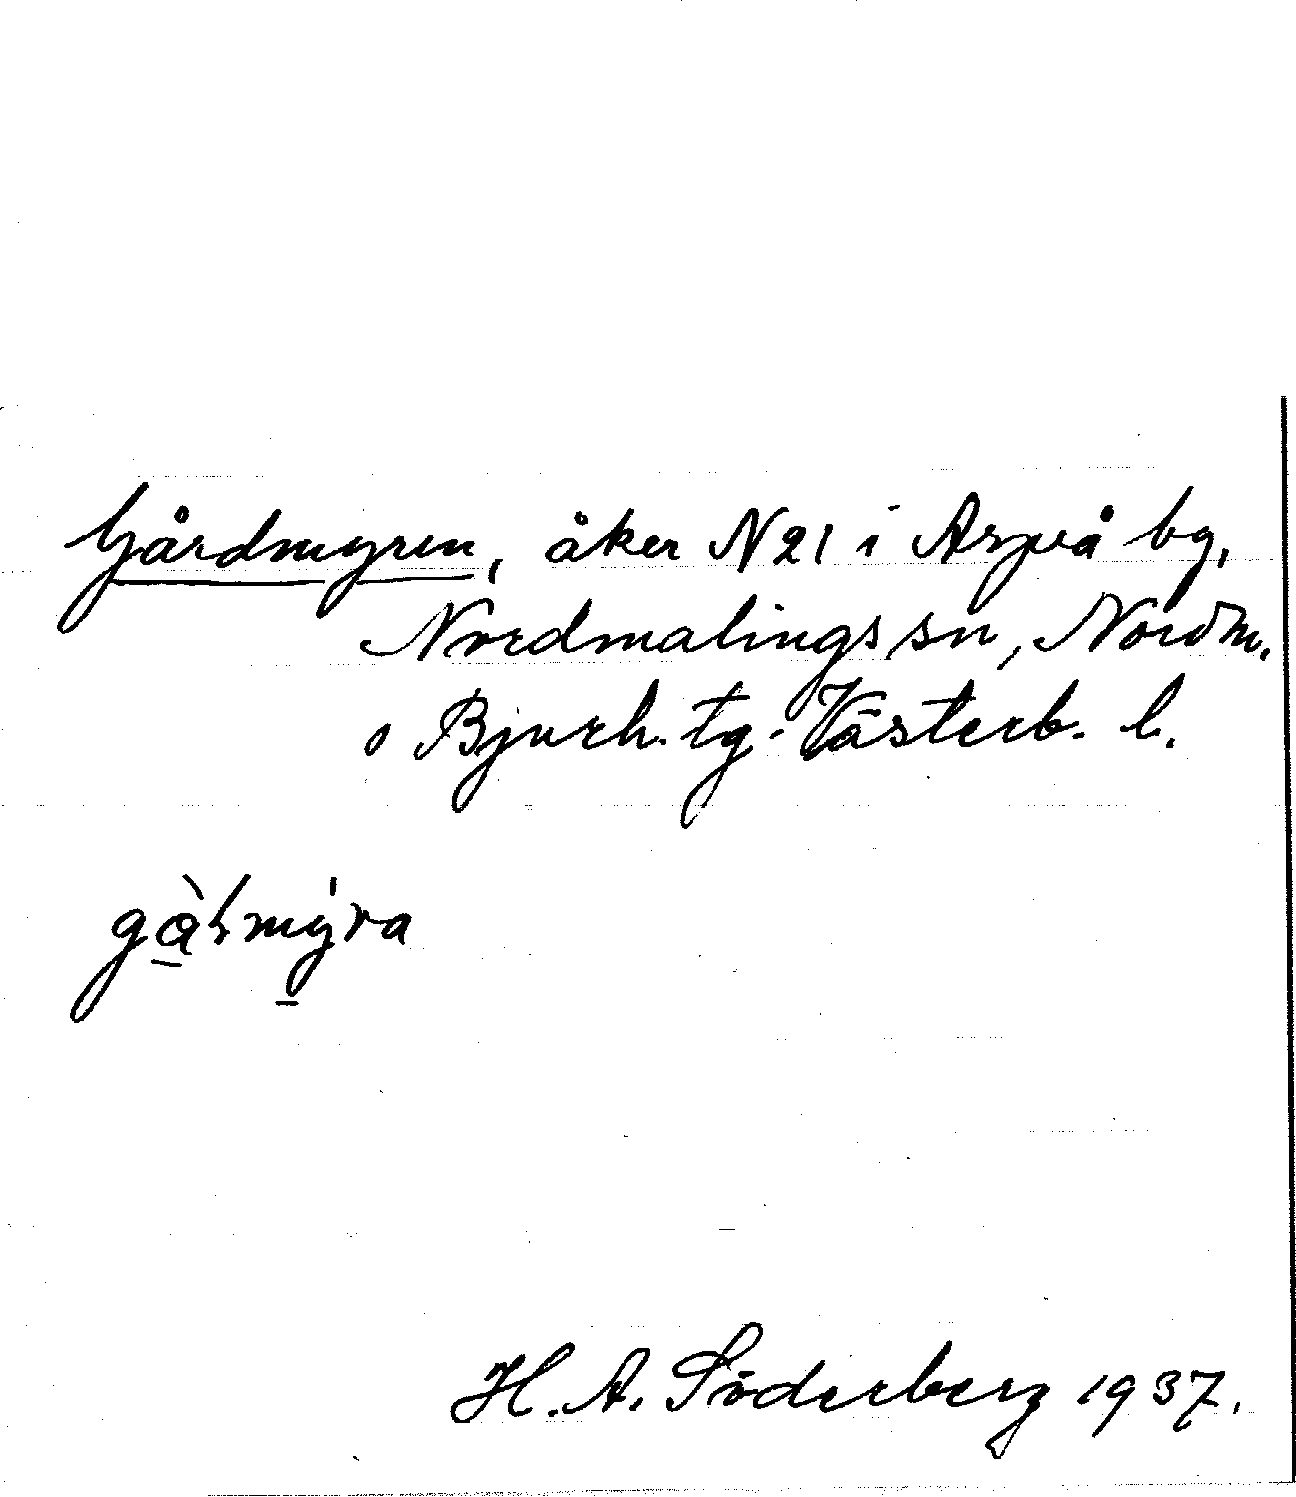 Gårdmyren, åker N 21 i Arpeå bg,
Nordmalings sn, Nordm.
o Bjurh. tg. Västerb. l.
gàɫmýra
H. A. Söderberg 1937.